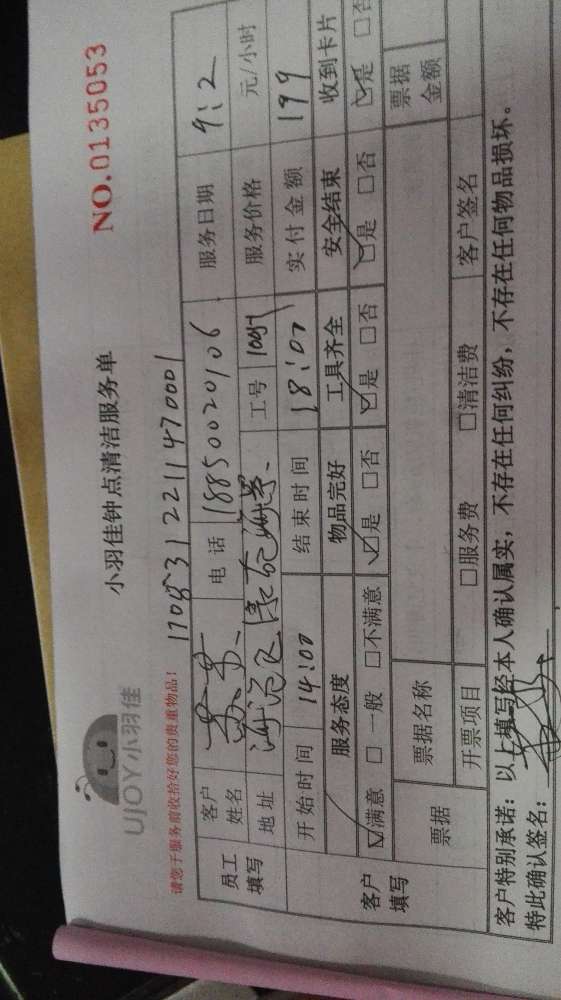 UJOY小羽佳
小羽佳钟点清洁服务单
NO.0135053
请您于服务前收拾好您的贵重物品!
1708312211470001
员工填写
客户姓名
电话 18850020106
服务日期 9:2
地址
工号
服务价格 元/小时
开始时间 14:00
结束时间 18:00
实付金额 199
客户填写
服务态度 物品完好 工具齐全 安全结束 收到卡片
☑满意 □一般 □不满意 ☑是 □否 ☑是 □否 ☑是 □否 ☑是 □否
票据 票据名称 票据金额
开票项目 □服务费 □清洁费 客户签名
客户特别承诺:以上填写经本人确认属实,不存在任何纠纷,不存在任何物品损坏。
特此确认签名: